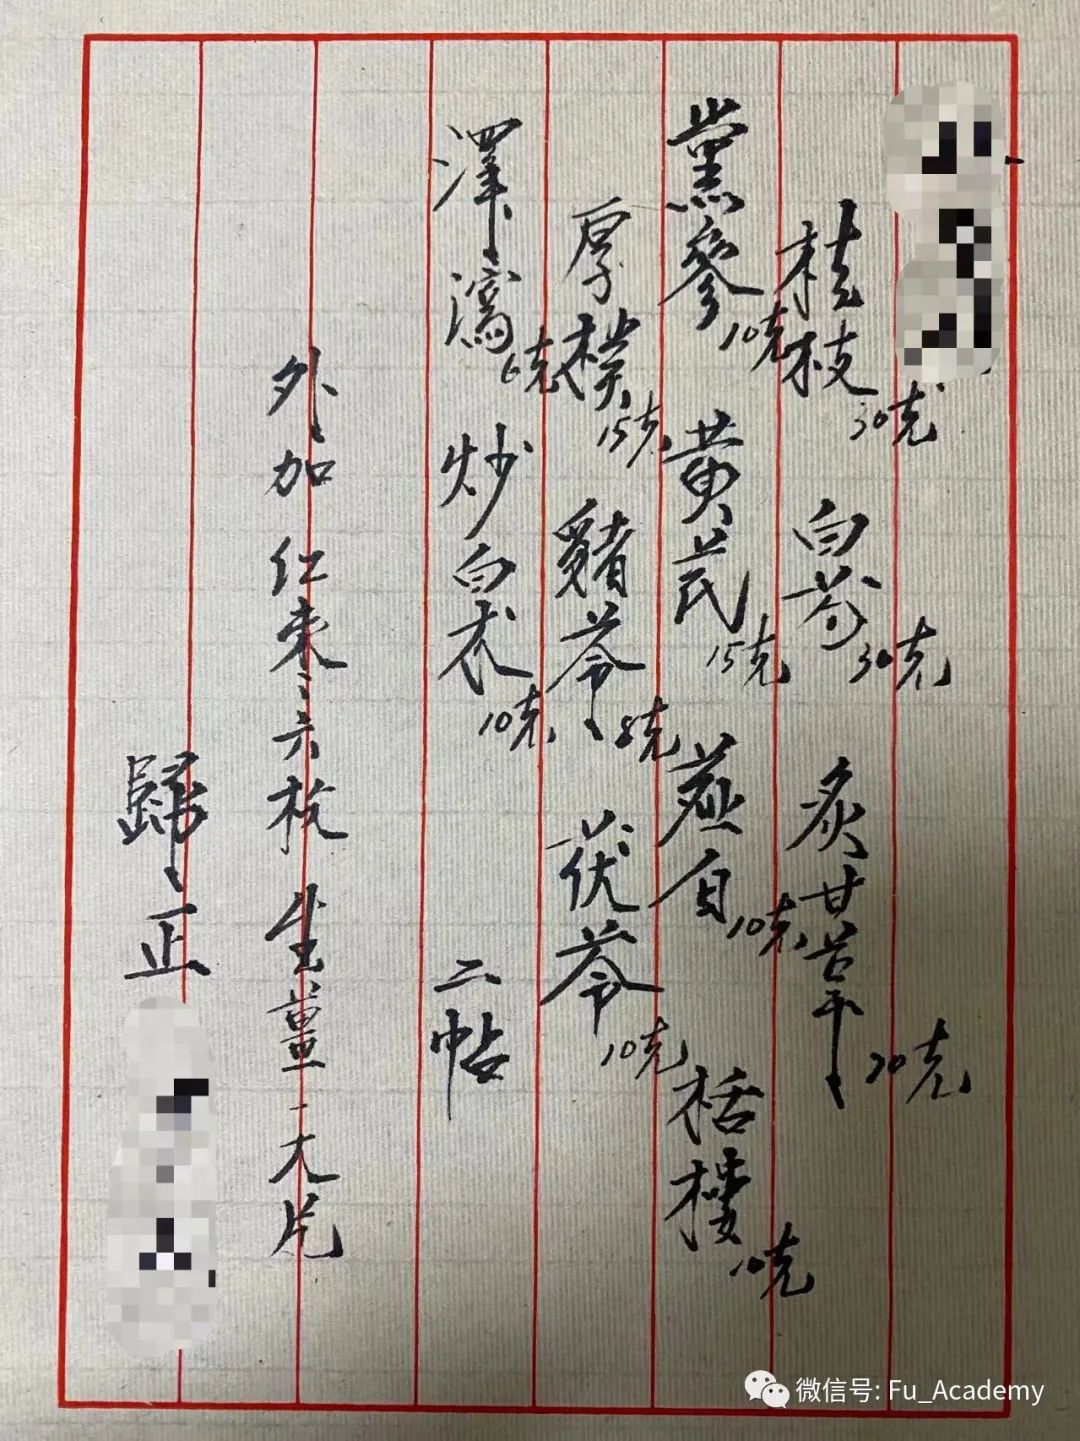 桂枝30克 白芍30克 炙甘草20克
黨參10克 黄芪15克 薤白10克 栝樓10克
厚樸15克 豬苓8克 茯苓10克
澤瀉6克 炒白术10克 二帖
外加红枣六枚 生薑一大片
歸正
微信号: Fu_Academy